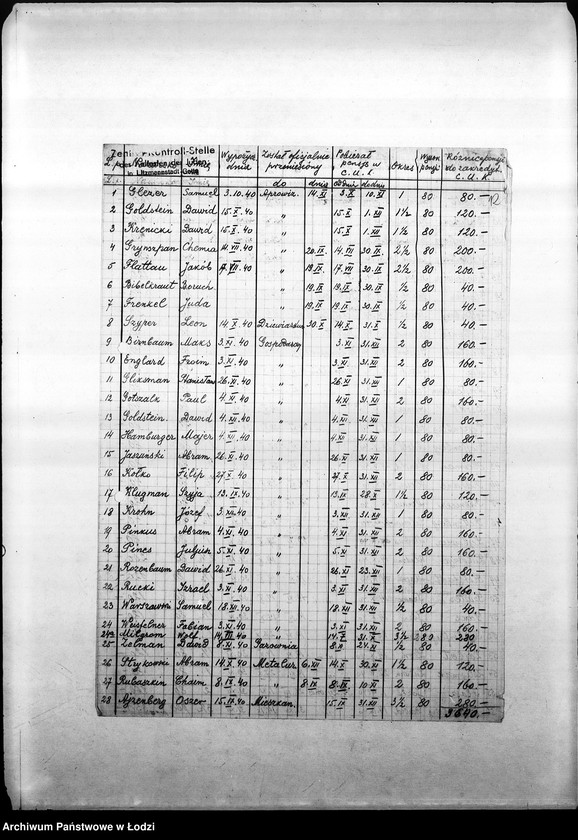 Zentral-Kontroll-Stelle
L.p. Nazwisko Imię Wypożycz. dnia Został oficjalnie przeniesiony Pobierał pensję w C.U.L Okres Wysok. pensji Różnicę pensji do zakredyt. C.U.K.
in Litzmannstadt-Getto
do dnia od dnia do dnia
1 Glezer Samuel 3.10.40 Aprowiz. 14.XI 3.X 10.XI 1 80 80.—
2 Goldstein Dawid 15.X.40 " 15.X 1.XII 1½ 80 120.—
3 Krzenicki Dawid 15.X.40 " 15.X 1.XII 1½ 80 120.—
4 Grynszpan Chemia 14.VII.40 " 20.IX 14.VII 30.IX 2½ 80 200.—
5 Flattau Jakób 17.VII.40 " 19.IX 17.VII 30.IX 2½ 80 200.—
6 Bibelkraut Boruch " 19.IX 19.IX 30.IX ½ 80 40.—
7 Frenkel Juda " 19.IX 19.IX 30.IX ½ 80 40.—
8 Szyper Leon 14.X.40 Dziewiarstwo 30.X 14.X 31.X ½ 80 40.—
9 Birnbaum Maks 3.XI.40 Gospodarczy 3.XI 31.XII 2 80 160.—
10 Englard Froim 3.XI.40 " 3.XI 31.XII 2 80 160.—
11 Glixsman Stanisław 26.XI.40 " 26.XI 31.XII 1 80 80.—
12 Gotszalk Paul 4.XI.40 " 4.XI 31.XII 2 80 160.—
13 Goldstein Dawid 4.XII.40 " 4.XII 31.XII 1 80 80.—
14 Hamburger Majer 4.XII.40 " 4.XII 31.XII 1 80 80.—
15 Jaszuński Abram 26.XI.40 " 26.XI 31.XII 1 80 80.—
16 Kołko Filip 27.X.40 " 27.X 31.XII 2 80 160.—
17 Klugman Szyja 13.IX.40 " 13.IX 28.X 1½ 80 120.—
18 Krohn Józef 3.XII.40 " 3.XII 31.XII 1 80 80.—
19 Pinkus Abram 4.XI.40 " 4.XI 31.XII 2 80 160.—
20 Pines Juljusz 5.XI.40 " 5.XI 31.XII 2 80 160.—
21 Rozenbaum Dawid 26.XI.40 " 26.XI 23.XII 1 80 80.—
22 Rucki Izrael 3.XI.40 " 3.XI 31.XII 2 80 160.—
23 Warszawski Samuel 18.XII.40 " 18.XII 31.XII ½ 80 40.—
24 Weisfelner Fabian 3.XI.40 " 3.XI 31.XII 2 80 160.—
24a Milgrom Wolf 14.VII.40 " 31.X 3½ 280
25 Zelman Dawid 8.XI.40 Gazownia 8.XI 24.XI ½ 80 40.—
26 Strykowski Abram 14.X.40 Metalur. 6.XII 14.X 30.XI 1½ 80 120.—
27 Rubaszkin Chaim 8.IX.40 " 8.IX 8.IX 10.XI 2 80 160.—
28 Ajzenberg Oszer 15.IX.40 Mieszkan. 15.IX 31.XII 3½ 80 280.—
3640.—
Archiwum Państwowe w Łodzi